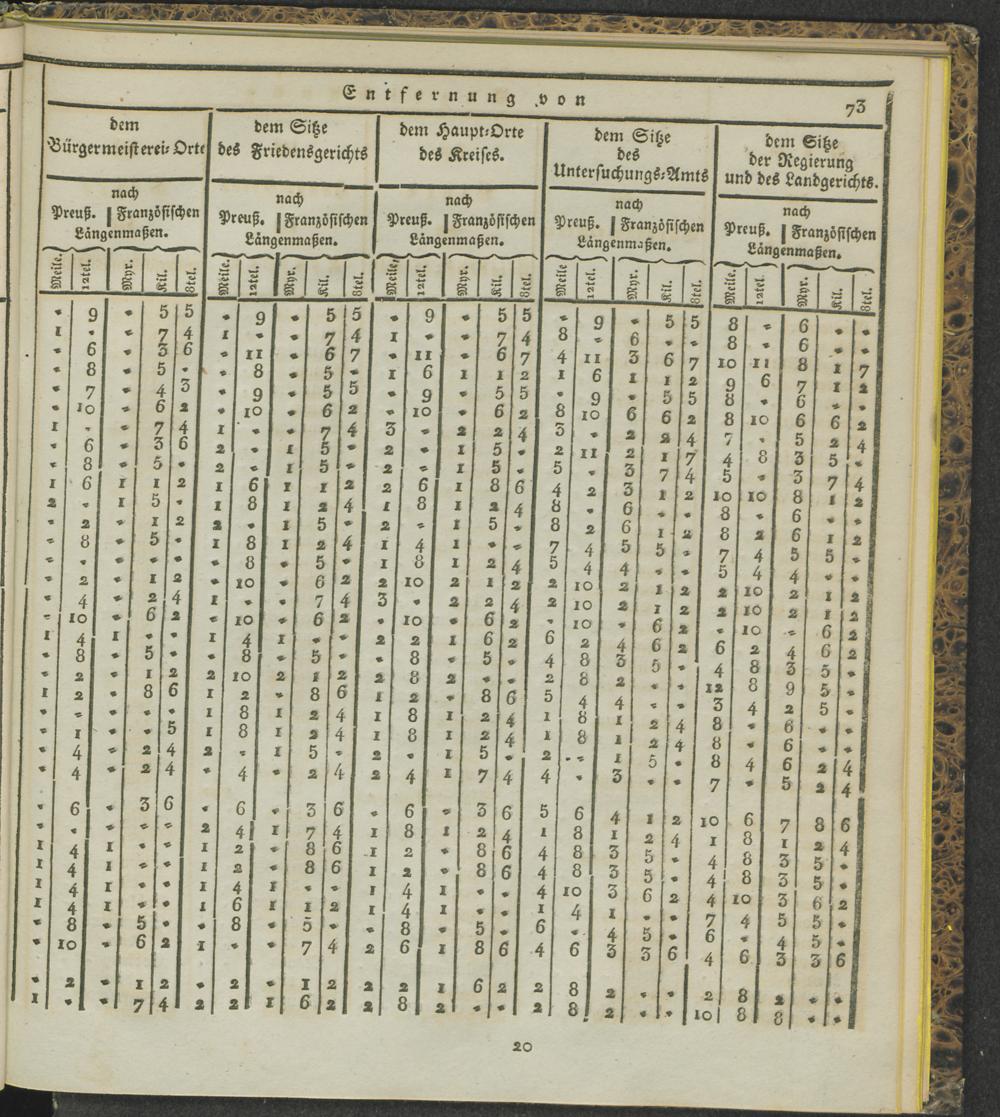 Entfernung von
73
dem Bürgermeisterei-Orte | dem Sitze des Friedensgerichts | dem Haupt-Orte des Kreises. | dem Sitze des Untersuchungs-Amts | dem Sitze der Regierung und des Landgerichts.
nach | nach | nach | nach | nach
Preuß. | Französischen | Preuß. | Französischen | Preuß. | Französischen | Preuß. | Französischen | Preuß. | Französischen
Längenmaßen. | Längenmaßen. | Längenmaßen. | Längenmaßen. | Längenmaßen.
Meile. 12tel. Myr. Kil. 8tel. | Meile. 12tel. Myr. Kil. 8tel. | Meile. 12tel. Myr. Kil. 8tel. | Meile 12tel. Myr. Kil. 8tel. | Meile. 12tel. Myr. Kil. 8tel.
" 9 " 5 5 | " 9 " 5 5 | " 9 " 5 5 | " 9 " 5 5 | 8 " 6 " "
1 " " 7 4 | 1 " " 7 4 | 1 " " 7 4 | 8 " 6 " " | 8 " 6 " "
" 6 " 3 6 | " 11 " 6 7 | " 11 " 6 7 | 4 11 3 6 7 | 10 11 8 1 7
" 8 " 5 " | " 8 " 5 " | 1 6 1 1 2 | 1 6 1 1 2 | 9 6 7 1 2
" 7 " 4 3 | " 9 " 5 5 | " 9 " 5 5 | " 9 " 5 5 | 8 " 6 " "
" 10 " 6 2 | " 10 " 6 2 | " 10 " 6 2 | 8 10 6 6 2 | 8 10 6 6 2
1 " " 7 4 | 1 " " 7 4 | 3 " 2 2 4 | 3 " 2 2 4 | 7 " 5 2 4
" 6 " 3 6 | 2 " 1 5 " | 2 " 1 5 " | 2 11 2 1 7 | 4 8 3 5 "
" 8 " 5 " | 2 " 1 5 " | 2 " 1 5 " | 5 " 3 7 4 | 5 " 3 7 4
1 6 1 1 2 | 1 6 1 1 2 | 2 6 1 8 6 | 4 2 3 1 2 | 10 10 8 1 2
2 " 1 5 " | 1 8 1 2 4 | 1 8 1 2 4 | 8 " 6 " " | 8 " 6 " "
" 2 " 1 2 | 2 " 1 5 " | 2 " 1 5 " | 8 2 6 1 2 | 8 2 6 1 2
" 8 " 5 " | 1 8 1 2 4 | 1 4 1 " " | 7 4 5 5 " | 7 4 5 5 "
" " " " " | " 8 " 5 " | 1 8 1 2 4 | 5 4 4 " " | 5 4 4 " "
" 2 " 1 2 | " 10 " 6 2 | 2 10 2 1 2 | 2 10 2 1 2 | 2 10 2 1 2
" 4 " 2 4 | 1 " " 7 4 | 3 " 2 2 4 | 2 10 2 1 2 | 2 10 2 1 2
" 10 " 6 2 | " 10 " 6 2 | " 10 " 6 2 | " 10 " 6 2 | " 10 " 6 2
1 4 1 " " | 1 4 1 " " | 2 2 1 6 2 | 6 2 4 6 2 | 6 2 4 6 2
" 8 " 5 " | " 8 " 5 " | " 8 " 5 " | 4 8 3 5 " | 4 8 3 5 "
" 2 " 1 2 | 2 10 2 1 2 | 2 8 2 " " | 2 8 2 " " | 12 8 9 5 "
1 2 " 8 6 | 1 2 " 8 6 | 1 2 " 8 6 | 5 4 4 " " | 3 4 2 5 "
" " " " " | 1 8 1 2 4 | 1 8 1 2 4 | 1 8 1 2 4 | 8 " 6 " "
" 1 " " 5 | 1 8 1 2 4 | 1 8 1 2 4 | 1 8 1 2 4 | 8 " 6 " "
" 4 " 2 4 | 2 " 1 5 " | 2 " 1 5 " | 2 " 1 5 " | 8 4 6 2 4
" 4 " 2 4 | " 4 " 2 4 | 2 4 1 7 4 | 4 " 3 " " | 7 " 5 2 4
" 6 " 3 6 | " 6 " 3 6 | " 6 " 3 6 | 5 6 4 1 2 | 10 6 7 8 6
" " " " " | 2 4 1 7 4 | 1 8 1 2 4 | 1 8 1 2 4 | 1 8 1 2 4
1 4 1 " " | 1 2 " 8 6 | 1 2 " 8 6 | 4 8 3 5 " | 4 8 3 5 "
1 4 1 " " | 1 2 " 8 6 | 1 2 " 8 6 | 4 8 3 5 " | 4 8 3 5 "
1 4 1 " " | 1 4 1 " " | 1 4 1 " " | 4 10 3 6 2 | 4 10 3 6 2
1 4 1 " " | 1 6 1 1 2 | 1 4 1 " " | 1 4 1 " " | 7 4 5 5 "
" 8 " 5 " | " 8 " 5 " | " 8 " 5 " | 6 " 4 5 " | 6 " 4 5 "
" 10 " 6 2 | 1 " " 7 4 | 2 6 1 8 6 | 4 6 3 3 6 | 4 6 3 3 6
" 2 " 1 2 | " 2 " 1 2 | 2 2 1 6 2 | 2 8 2 " " | 2 8 2 " "
1 " " 7 4 | 2 2 1 6 2 | 2 8 2 " " | 2 8 2 " " | 10 8 8 " "
20